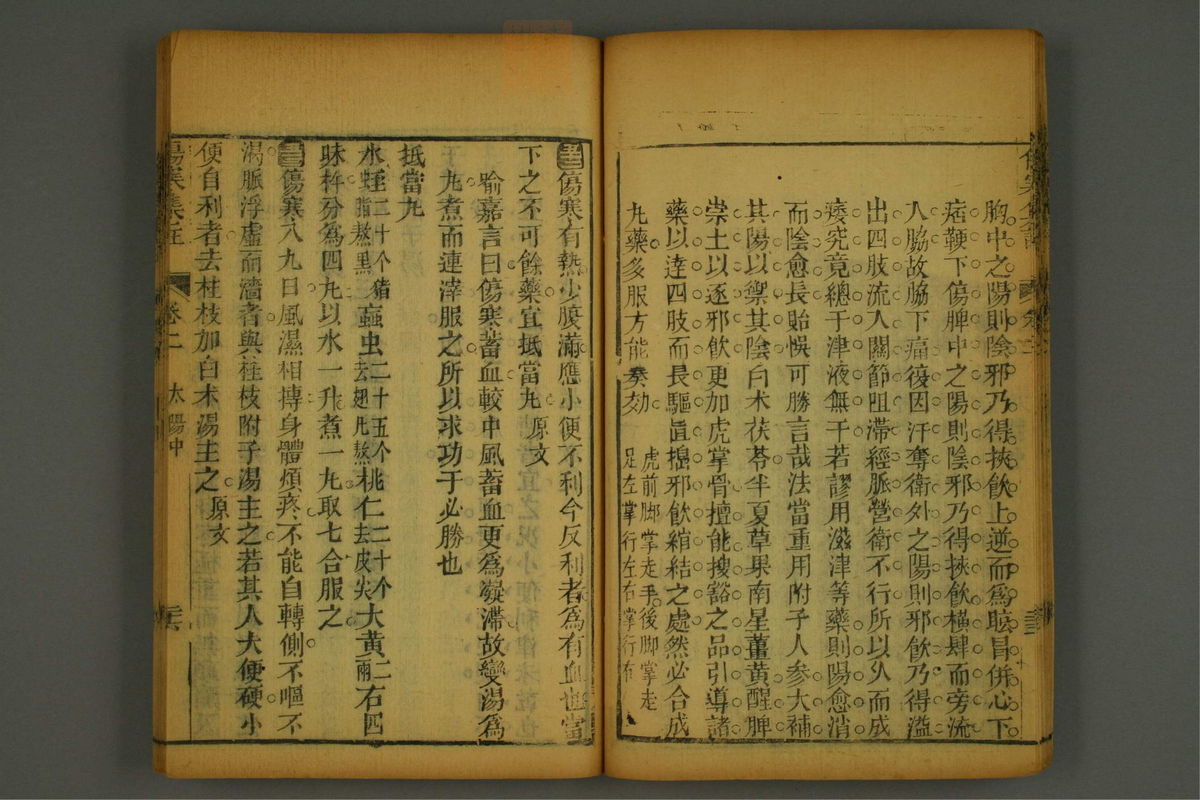 胸中之陽則陰邪乃得挾飲上逆而為眩冒併心下
痞鞕下傷脾中之陽則陰邪乃得挾飲橫肆而旁流
入脇故脇下痛後因汗奪衛外之陽則邪飲乃得溢
出四肢流入關節阻滯經脈營衛不行所以久而成
痿究竟總于津液無干若謬用滋津等藥則陽愈消
而陰愈長貽悞可勝言哉法當重用附子人参大補
其陽以禦其陰白朮茯苓半夏草果南星薑黃醒脾
崇土以逐邪飲更加虎掌骨擅能搜豁之品引導諸
藥以達四肢而長驅直搗邪飲綰結之處然必合成
丸藥多服方能奏効 虎前脚掌走手後脚掌走
足左掌行左右掌行右
傷寒有熱少腹滿應小便不利今反利者為有血也當
下之不可餘藥宜抵當丸 原文
喻嘉言曰傷寒蓄血較中風蓄血更為凝滯故變湯為
丸煮而連滓服之所以求功于必勝也
抵當丸
水蛭二十个猪脂熬黑 䖟虫二十五个去翅足熬 桃仁二十个去皮尖 大黃三兩 右四
味杵分為四丸以水一升煮一丸取七合服之
傷寒八九日風濕相搏身體煩疼不能自轉側不嘔不
渴脈浮虛而濇者與桂枝附子湯主之若其人大便硬小
便自利者去桂枝加白朮湯主之 原文
傷寒集註 卷二 太陽中